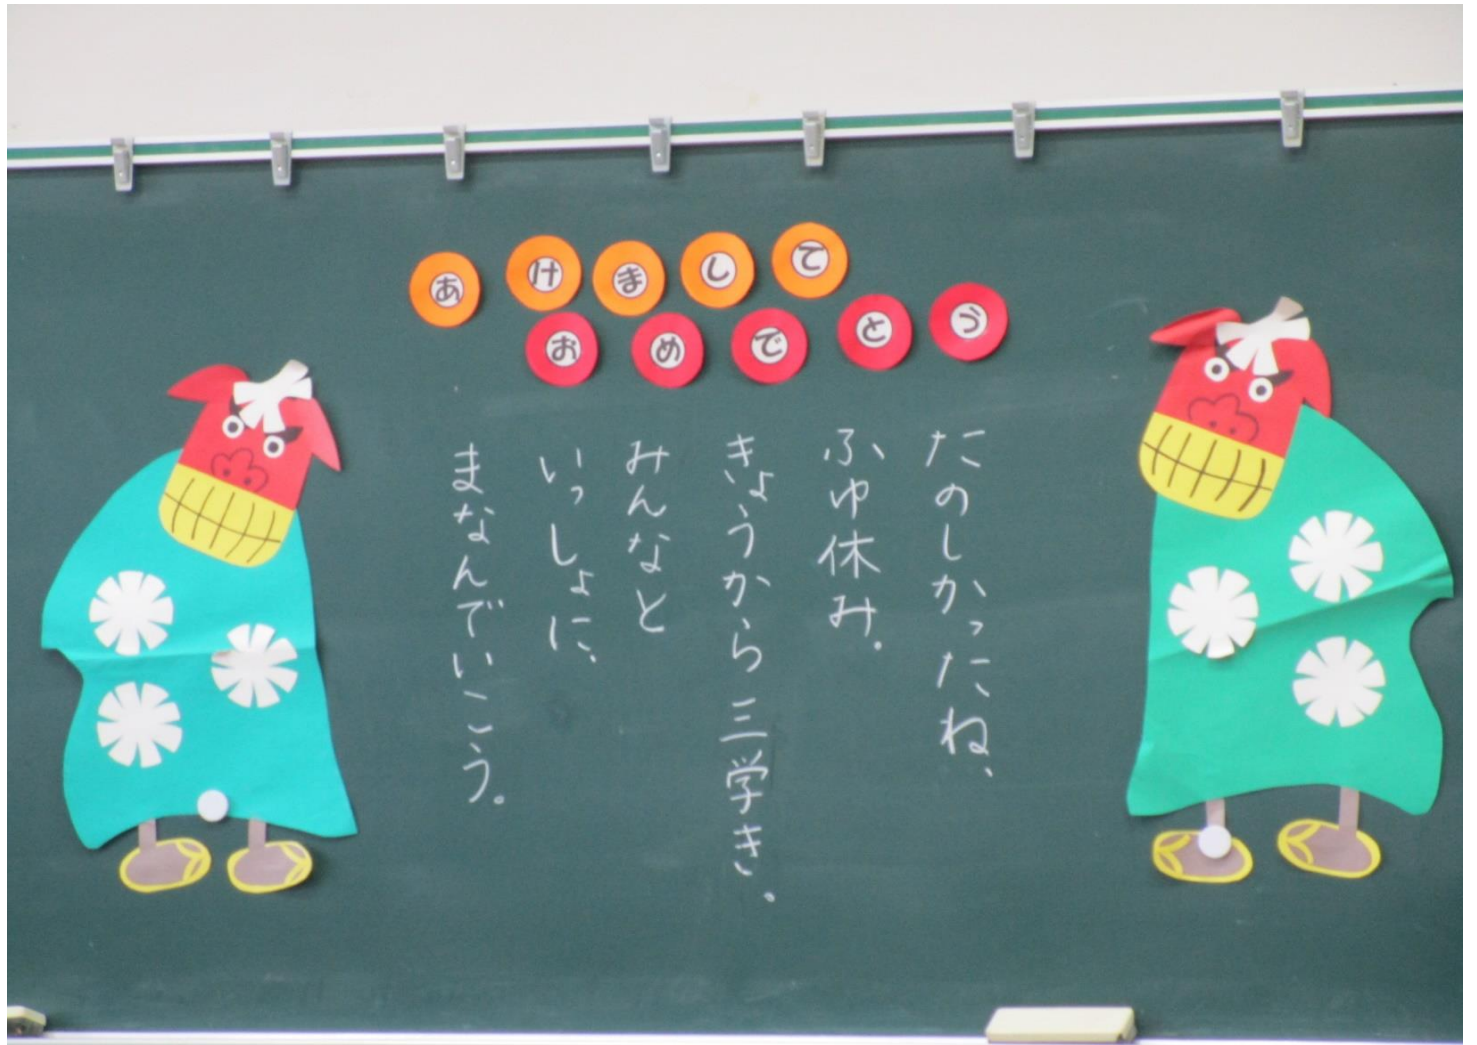 あけまして
おめでとう
たのしかったね、
ふゆ休み。
きょうから三学き。
みんなと
いっしょに、
まなんでいこう。